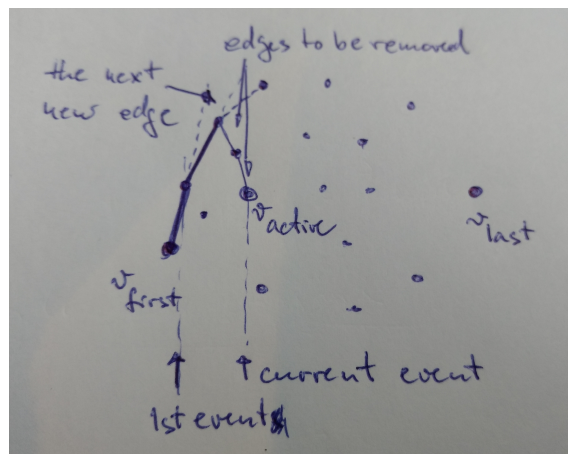 edges to be removed
the next
new edge
v active
v last
v first
current event
1st event